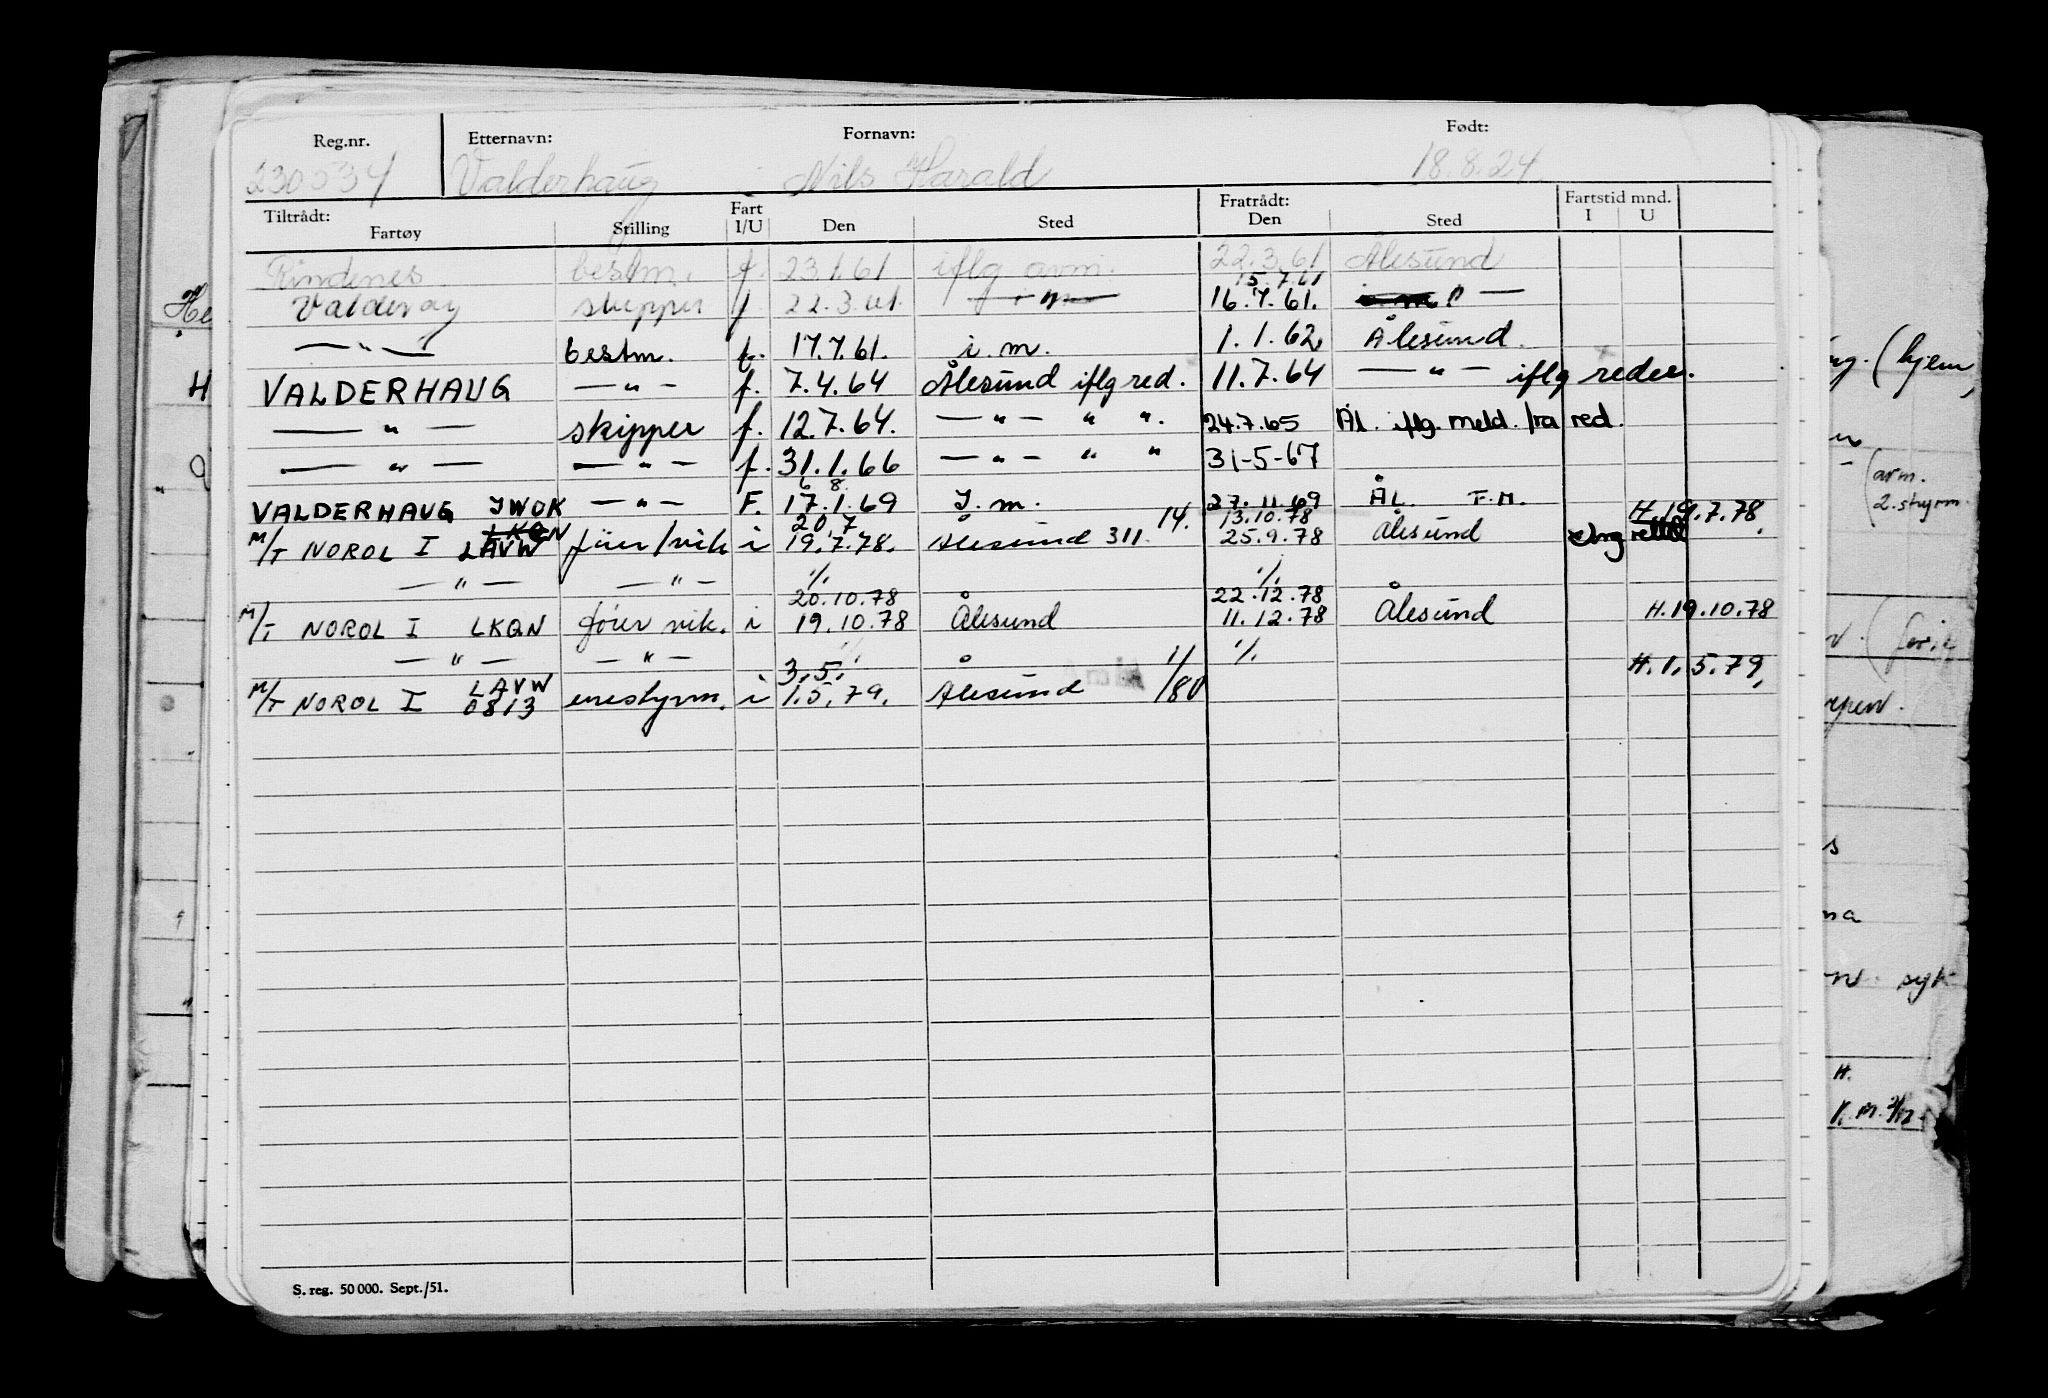 Reg.nr. Etternavn: Fornavn: Født:
230534 Valderhaug Nils Harald 18.8.24.
Tiltrådt: Fart Fratrådt: Fartstid mnd.
Fartøy Stilling I/U Den Sted Den Sted I U
Rindenes bestm. f. 23.1.61 iflg arm. 22.3.61 Ålesund
15.7.61
Valderøy skipper f. 22.3.61. 16.7.61. — " —
— " — bestm. f. 17.7.61. i.m. 1.1.62. Ålesund.
VALDERHAUG — " — f. 7.4.64 Ålesund iflg red. 11.7.64 — " — iflg reder.
— " — skipper f. 12.7.64. — " — " ". 24.7.65 Ål. iflg. meld. fra red.
— " — — " — f. 31.1.66 — " — " " 31-5-67
6 8.
VALDERHAUG JWOK — " — F. 17.1.69 I.m. 27.11.69 ÅL. F.M.
LKQN 20 7 14. 13.10.78 H.19.7.78.
M/T NOROL I LAVW fører/vik i 19.7.78. Ålesund 311. 25.9.78 Ålesund
— " — — " — 1/1 1/1
20.10.78 22.12.78
M/T NOROL I LKQN fører vik. i 19.10.78 Ålesund 11.12.78 Ålesund H.19.10.78
— " — — " — 1/1
3.5. H.1.5.79.
M/T NOROL I LAVW 0813 enestyrm. i 1.5.79. Ålesund 1/1/80
S. reg. 50 000. Sept./51.
He
H
(hjem
(arm.
2. styrm.
H.